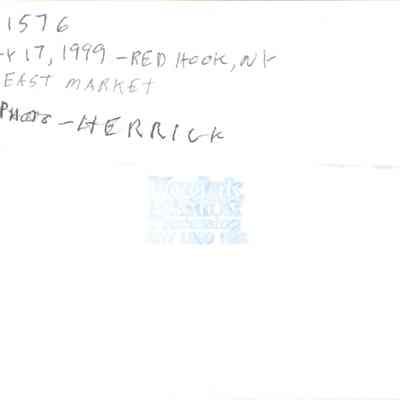 1576
Y 17, 1999 - RED HOOK, NY
EAST MARKET
PHOTO - HERRICK